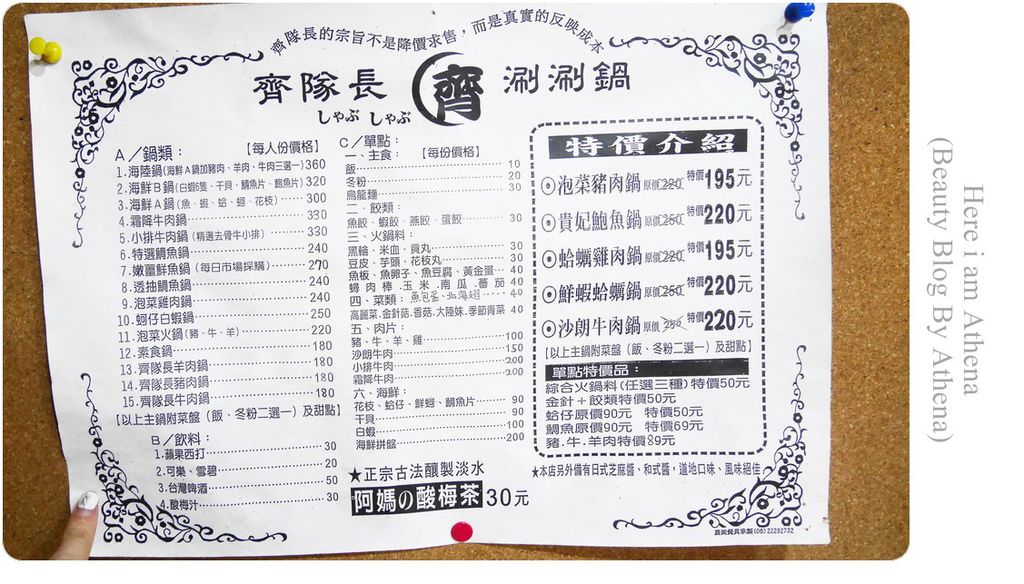 齊隊長的宗旨不是降價求售，而是真實的反映成本
齊隊長 齊 涮涮鍋
しゃぶ しゃぶ
A／鍋類： 【每人份價格】
1.海陸鍋(海鮮A鍋加豬肉、羊肉、牛肉三選一) 360
2.海鮮B鍋(白蝦6隻、干貝、鯛魚片、鮑魚片) 320
3.海鮮A鍋(魚、蝦、蛤、蟳、花枝) 300
4.霜降牛肉鍋 330
5.小排牛肉鍋(精選去骨牛小排) 330
6.特選鯛魚鍋 240
7.嫩薑鮮魚鍋(每日市場採購) 270
8.透抽鯛魚鍋 240
9.泡菜雞肉鍋 240
10.蚵仔白蝦鍋 250
11.泡菜火鍋(豬、牛、羊) 220
12.素食鍋 180
13.齊隊長羊肉鍋 180
14.齊隊長豬肉鍋 180
15.齊隊長牛肉鍋 180
【以上主鍋附菜盤（飯、冬粉二選一）及甜點】
B／飲料：
1.蘋果西打 30
2.可樂、雪碧 20
3.台灣啤酒 50
4.酸梅汁 30
C／單點：
一、主食： 【每份價格】
飯 10
冬粉 20
烏龍麵 30
二、餃類：
魚餃、蝦餃、燕餃、蛋餃 30
三、火鍋料：
黑輪、米血、貢丸 30
豆皮、芋頭、花枝丸 30
魚板、魚卵子、魚豆腐、黃金蛋 40
蟳肉棒.玉米.南瓜.蕃茄 40
四、菜類：魚包蛋、北海翅 40
高麗菜.金針菇.香菇.大陸妹.季節青菜 40
五、肉片：
豬、牛、羊、雞 100
沙朗牛肉 150
小排牛肉 200
霜降牛肉 200
六、海鮮：
花枝、蛤仔、鮮蟳、鯛魚片 90
干貝 90
白蝦 100
海鮮拼盤 200
★正宗古法釀製淡水
阿媽の酸梅茶 30元
特價介紹
⊙泡菜豬肉鍋 原價220 特價195元
⊙貴妃鮑魚鍋 原價250 特價220元
⊙蛤蠣雞肉鍋 原價220 特價195元
⊙鮮蝦蛤蠣鍋 原價250 特價220元
⊙沙朗牛肉鍋 原價250 特價220元
【以上主鍋附菜盤（飯、冬粉二選一）及甜點】
單點特價品：
綜合火鍋料(任選三種)特價50元
金針＋餃類特價50元
蛤仔原價90元 特價50元
鯛魚原價90元 特價69元
豬.牛.羊肉特價89元
★本店另外備有日式芝麻醬、和式醬，道地口味、風味絕佳
嘉英餐具承製(06)2292732
Here i am Athena
(Beauty Blog By Athena)